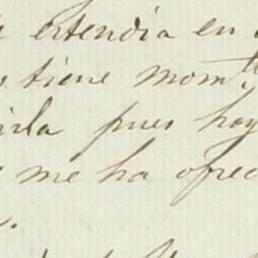 extendia en
tiene mom.to
irla pues hay
me ha ofrec